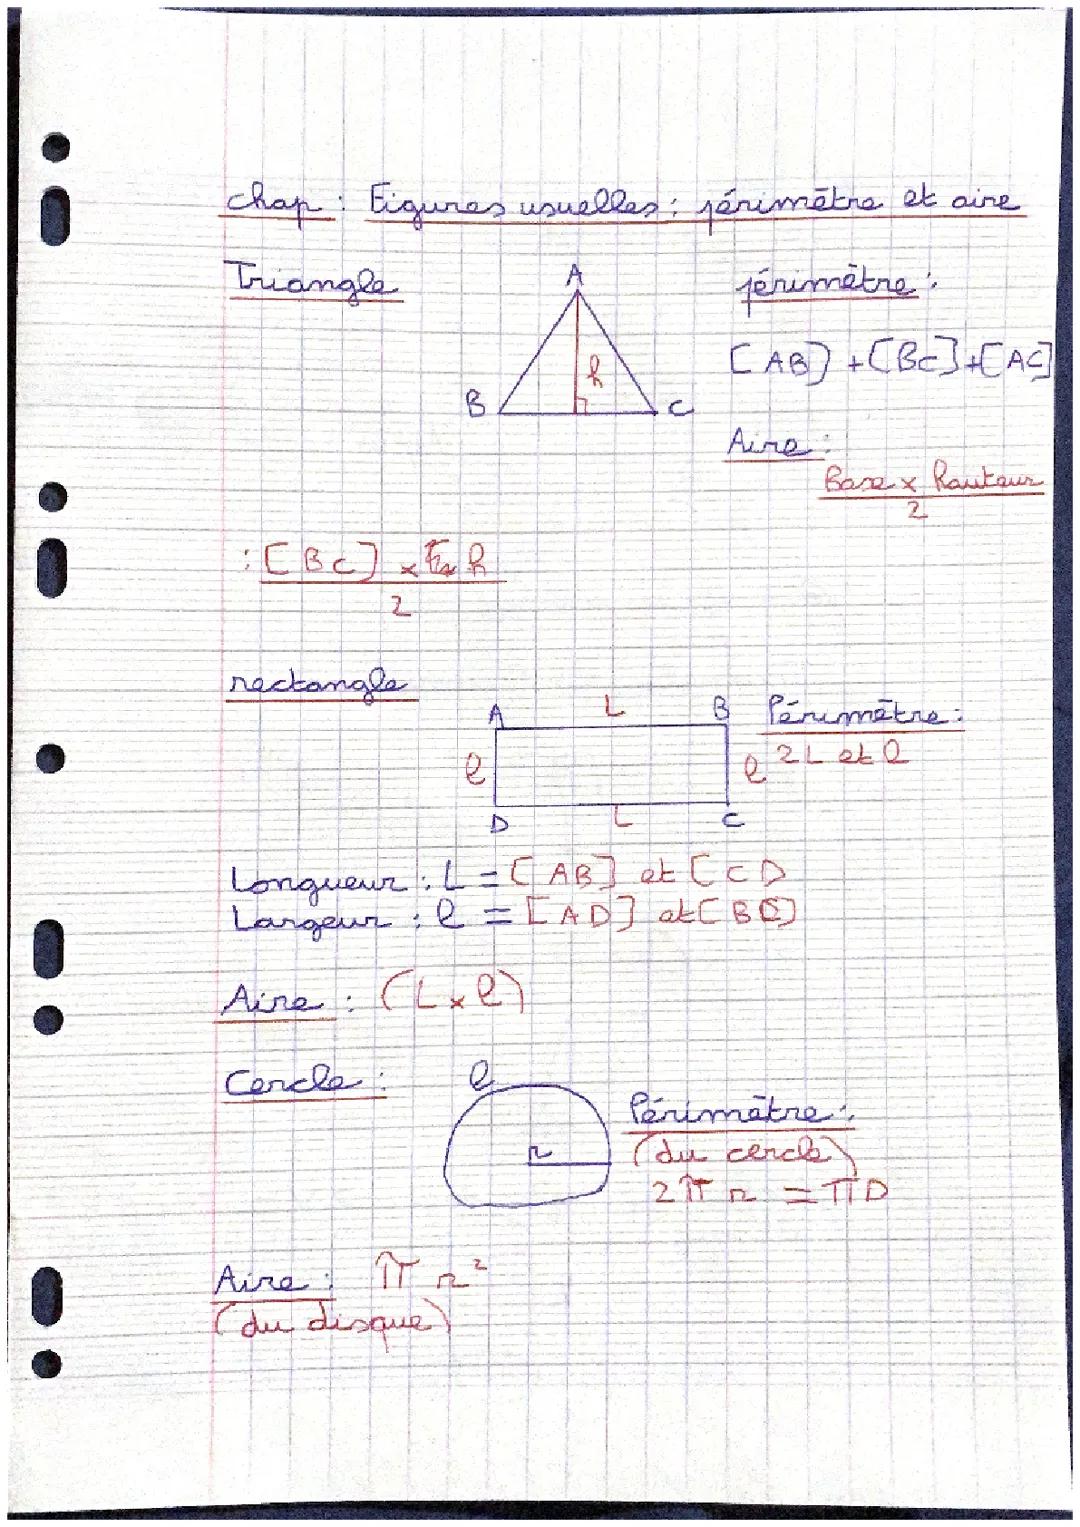 chap : Figures usuelles : périmètre et aire
Triangle
A
périmètre :
h
[AB] + [BC] + [AC]
B
C
Aire :
Base x hauteur
2
: [BC] x h
2
rectangle
A
L
B
Périmètre :
l
l
2L et l
D
L
C
Longueur : L = [AB] et [CD
Largeur : l = [AD] et [BC]
Aire : (L x l)
Cercle :
Périmètre :
r
(du cercle)
2π r = πD
Aire : π r²
(du disque)